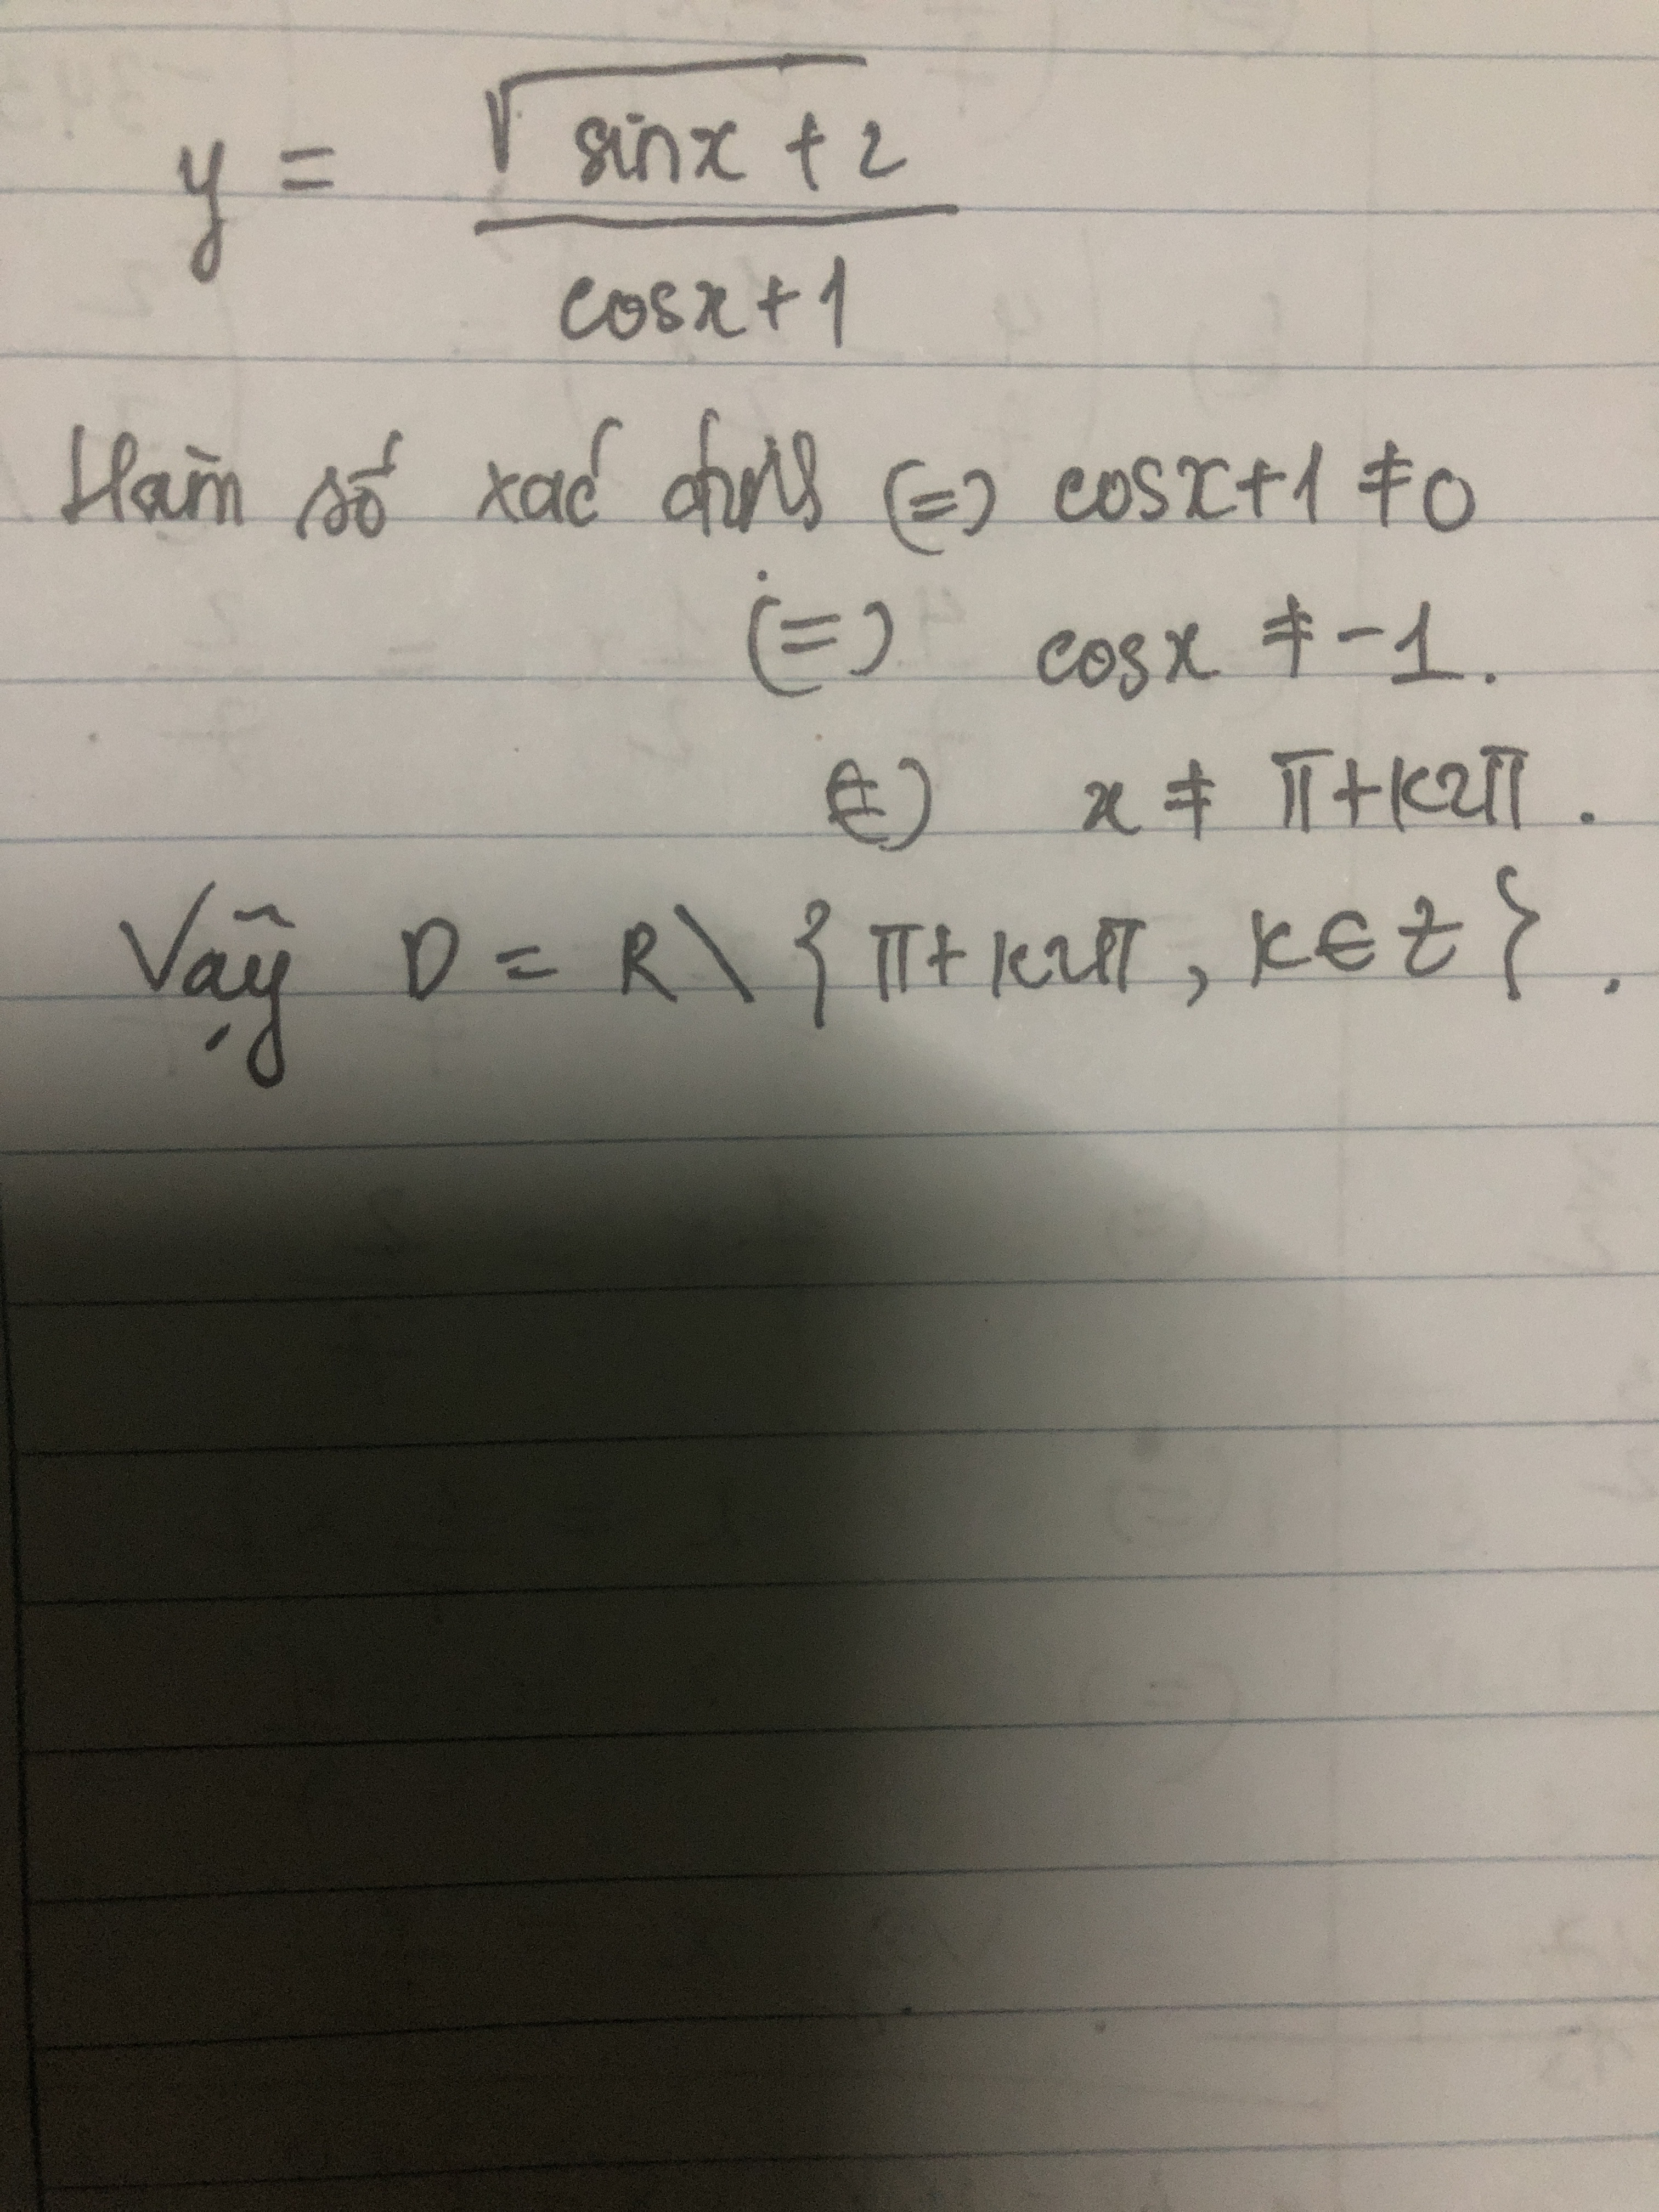 y = √(sinx + 2) / (cosx + 1)
Hàm số xác định (=) cosx+1 ≠ 0
(=) cosx ≠ -1.
(=) x ≠ π+k2π.
Vậy D = R \ { π+k2π, k∈Z }.